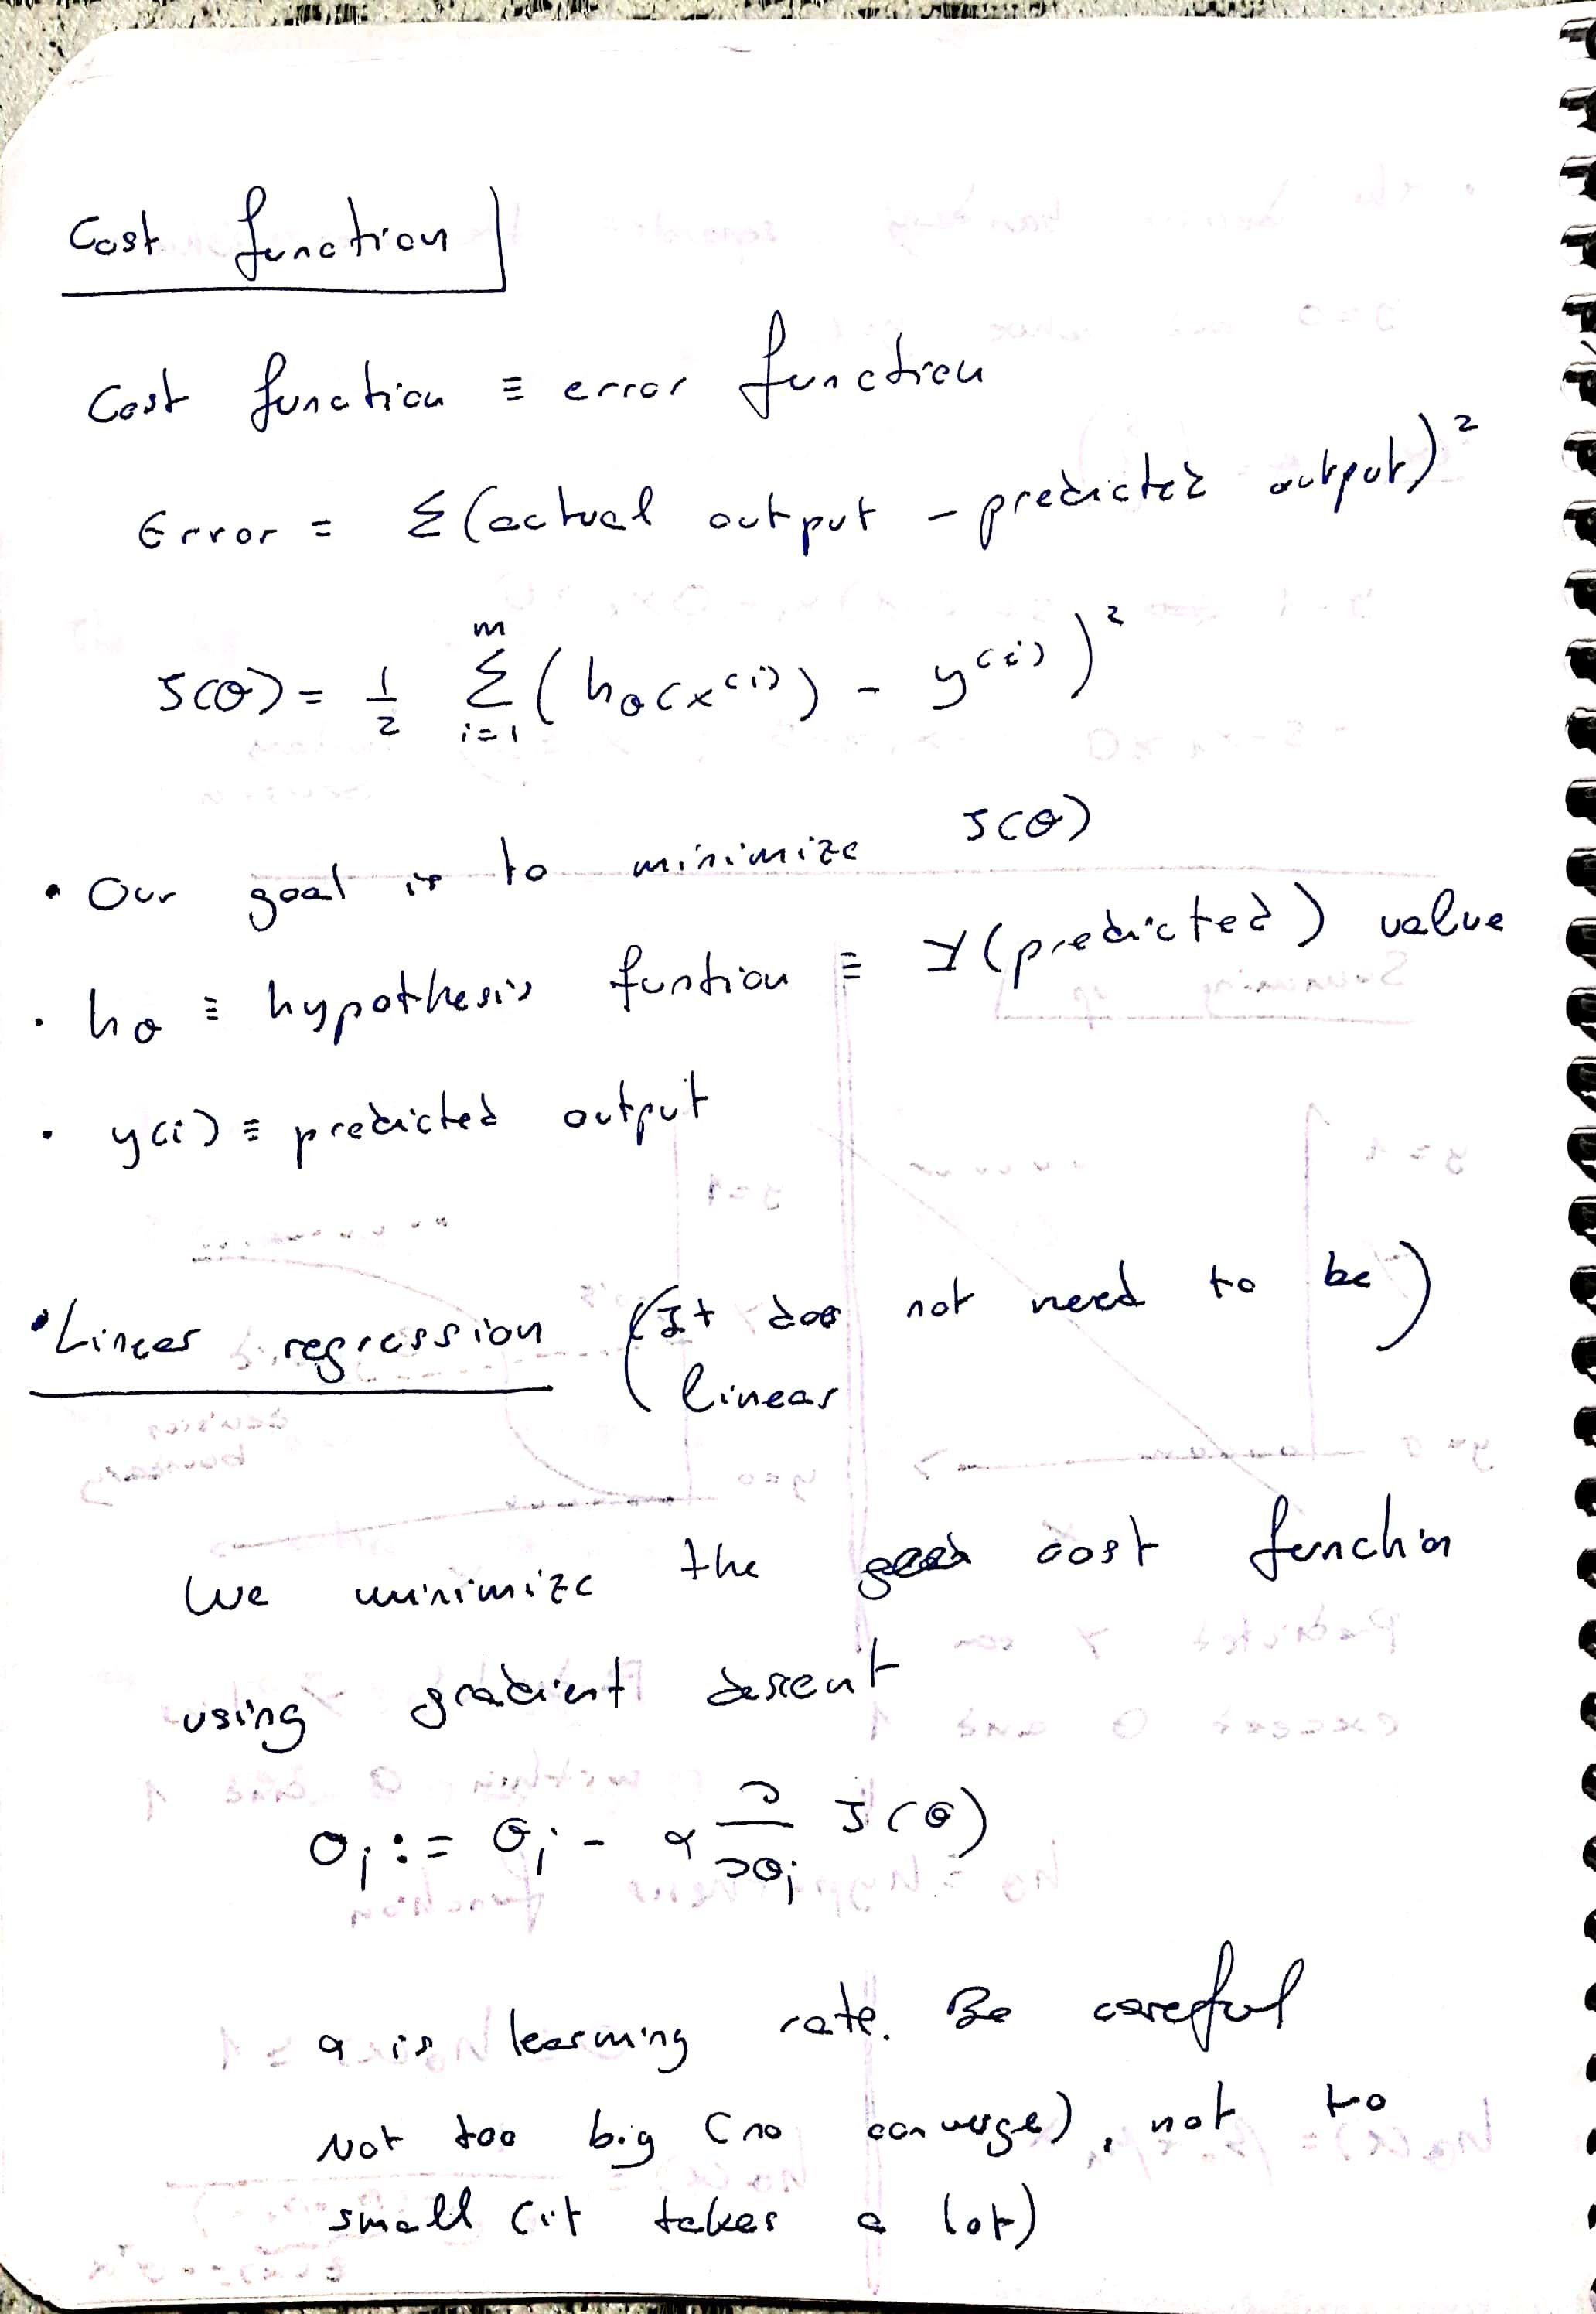 Cost function
Cost function ≡ error function
Error = Σ(actual output - predicted output)²
J(θ) = 1/2 Σ_{i=1}^{m} (hθ(x^(i)) - y^(i))²
• Our goal is to minimize J(θ)
• hθ ≡ hypothesis funtion ≡ Y(predicted) value
• y(i) ≡ predicted output
• Linear regression (It does not need to be)
linear
We minimize the cost function
using gradient descent
θj := θj - α ∂/∂θj J(θ)
α is learning rate. Be careful
Not too big (no converge), not to
small (it takes a lot)